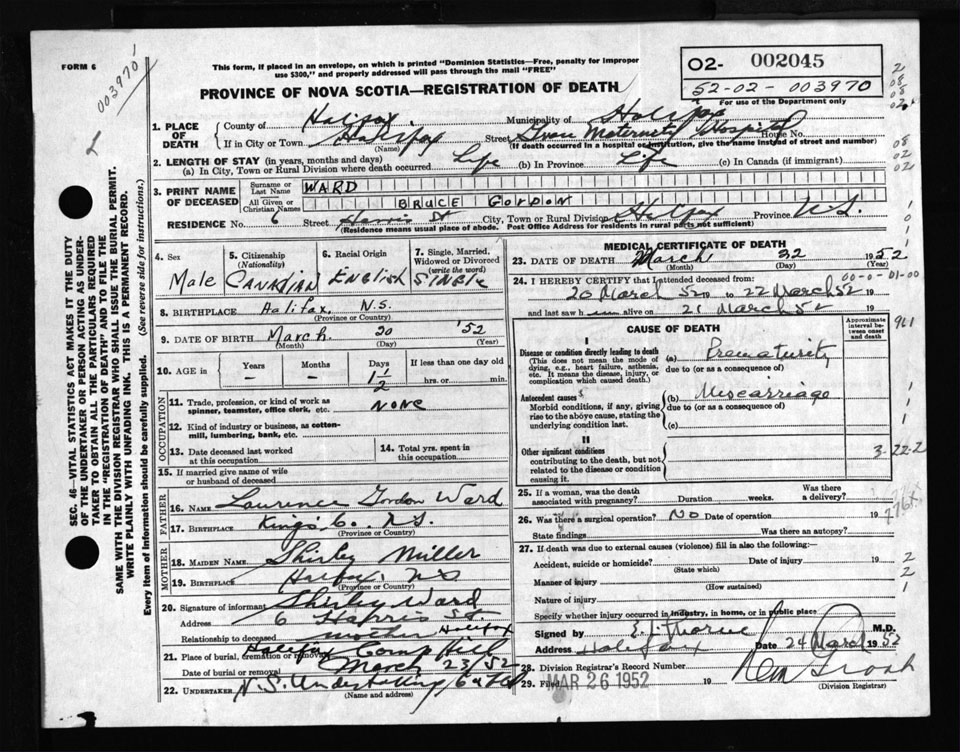 FORM 6
003970
This form, if placed in an envelope, on which is printed "Dominion Statistics—Free, penalty for improper
use $300," and properly addressed will pass through the mail "FREE"
PROVINCE OF NOVA SCOTIA—REGISTRATION OF DEATH
02- 002045
52-02-003970
For use of the Department only
1. PLACE OF DEATH
County of Halifax Municipality of Halifax
If in City or Town Halifax Street Maternity Hospital House No.
(Name) (If death occurred in a hospital or institution, give the name instead of street and number)
2. LENGTH OF STAY (in years, months and days)
(a) In City, Town or Rural Division where death occurred Life (b) In Province Life (c) In Canada (if immigrant)
3. PRINT NAME OF DECEASED
Surname or Last Name WARD
All Given or Christian Names BRUCE GORDON
RESIDENCE No. 6 Street Harris St City, Town or Rural Division Halifax Province N.S.
(Residence means usual place of abode. Post Office Address for residents in rural parts not sufficient)
4. Sex Male
5. Citizenship (Nationality) CANADIAN
6. Racial Origin ENGLISH
7. Single, Married, Widowed or Divorced (write the word) SINGLE
8. BIRTHPLACE Halifax, N.S.
(Province or Country)
9. DATE OF BIRTH March 20 '52
(Month) (Day) (Year)
10. AGE in Years – Months – Days 1½ If less than one day old hrs. or min.
OCCUPATION
11. Trade, profession, or kind of work as spinner, teamster, office clerk, etc. NONE
12. Kind of industry or business, as cotton-mill, lumbering, bank, etc.
13. Date deceased last worked at this occupation
14. Total yrs. spent in this occupation
15. If married give name of wife or husband of deceased
FATHER
16. NAME Laurence Gordon Ward
17. BIRTHPLACE Kings Co. N.S.
(Province or Country)
MOTHER
18. MAIDEN NAME Shirley Miller
19. BIRTHPLACE Halifax, N.S
(Province or Country)
20. Signature of informant Shirley Ward
Address 6 Harris St. Halifax
Relationship to deceased mother
21. Place of burial, cremation or removal Halifax Camp Hill
Date of burial or removal March 23/52
22. UNDERTAKER N.S. Undertaking Co Ltd
(Name and address)
MEDICAL CERTIFICATE OF DEATH
23. DATE OF DEATH March 22 1952
(Month) (Day) (Year)
24. I HEREBY CERTIFY that I attended deceased from:
00-0-01-00
20 March 52 19 to 22 March 52 19
and last saw h alive on 21 March 52
CAUSE OF DEATH
Approximate interval between onset and death
I
Disease or condition directly leading to death (a) Prematurity
(This does not mean the mode of dying, e.g., heart failure, asthenia, etc. It means the disease, injury, or complication which caused death.)
due to (or as a consequence of)
Antecedent causes (b) Miscarriage
Morbid conditions, if any, giving rise to the above cause, stating the underlying condition last.
due to (or as a consequence of)
(c)
II
Other significant conditions contributing to the death, but not related to the disease or condition causing it.
3-22-2
25. If a woman, was the death associated with pregnancy? Duration weeks. Was there a delivery?
26. Was there a surgical operation? NO Date of operation 19
State findings Was there an autopsy?
27. If death was due to external causes (violence) fill in also the following:
Accident, suicide or homicide? Date of injury 19
(State which)
Manner of injury
(How sustained)
Nature of injury
Specify whether injury occurred in industry, in home, or in public place
Signed by M.D.
Address Halifax Date 24 March 1952
28. Division Registrar's Record Number
29. Filed MAR 26 1952 19
(Division Registrar)
SEC. 46—VITAL STATISTICS ACT MAKES IT THE DUTY
OF THE UNDERTAKER OR PERSON ACTING AS UNDER-
TAKER TO OBTAIN ALL THE PARTICULARS REQUIRED
IN THE "REGISTRATION OF DEATH" AND TO FILE THE
SAME WITH THE DIVISION REGISTRAR WHO SHALL ISSUE THE BURIAL PERMIT.
WRITE PLAINLY WITH UNFADING INK. THIS IS A PERMANENT RECORD.
Every item of information should be carefully supplied. (See reverse side for instructions.)